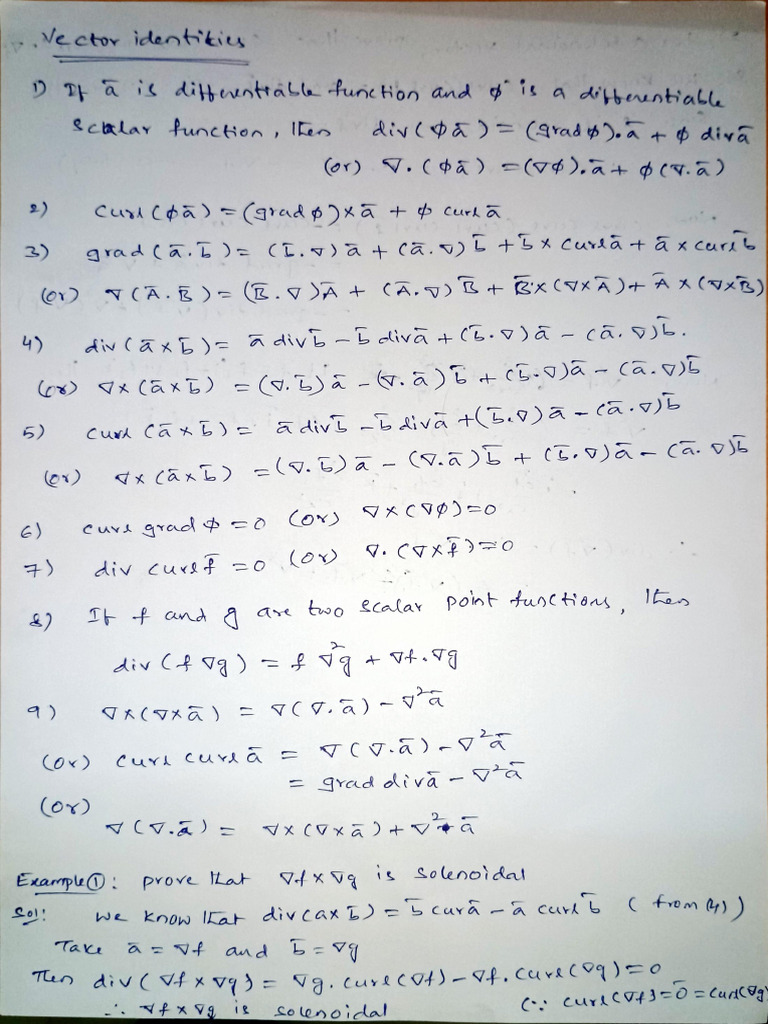 Vector identities
1) If ā is differentiable function and ϕ is a differentiable
scalar function, then div(ϕā) = (grad ϕ).ā + ϕ div ā
(or) ∇.(ϕā) = (∇ϕ).ā + ϕ(∇.ā)
2) curl(ϕā) = (grad ϕ)×ā + ϕ curl ā
3) grad(ā.b̄) = (b̄.∇)ā + (ā.∇)b̄ + b̄ × curl ā + ā × curl b̄
(or) ∇(Ā.B̄) = (B̄.∇)Ā + (Ā.∇)B̄ + B̄×(∇×Ā) + Ā×(∇×B̄)
4) div(ā×b̄) = ā div b̄ – b̄ div ā + (b̄.∇)ā – (ā.∇)b̄.
(or) ∇×(ā×b̄) = (∇.b̄)ā – (∇.ā)b̄ + (b̄.∇)ā – (ā.∇)b̄
5) curl(ā×b̄) = ā div b̄ – b̄ div ā + (b̄.∇)ā – (ā.∇)b̄
(or) ∇×(ā×b̄) = (∇.b̄)ā – (∇.ā)b̄ + (b̄.∇)ā – (ā.∇)b̄
6) curl grad ϕ = 0 (or) ∇×(∇ϕ) = 0
7) div curl f̄ = 0 (or) ∇.(∇×f̄) = 0
8) If f and g are two scalar point functions, then
div(f ∇g) = f ∇²g + ∇f.∇g
9) ∇×(∇×ā) = ∇(∇.ā) – ∇²ā
(or) curl curl ā = ∇(∇.ā) – ∇²ā
= grad div ā – ∇²ā
(or)
∇(∇.ā) = ∇×(∇×ā) + ∇² ā
Example①: prove that ∇f×∇g is solenoidal
Sol: we know that div(a×b̄) = b̄ curā – ā curl b̄ (from 4))
Take ā = ∇f and b̄ = ∇g
Then div(∇f×∇g) = ∇g.curl(∇f) – ∇f.curl(∇g) = 0
∴ ∇f×∇g is solenoidal (∵ curl(∇f) = 0̄ = curl(∇g)